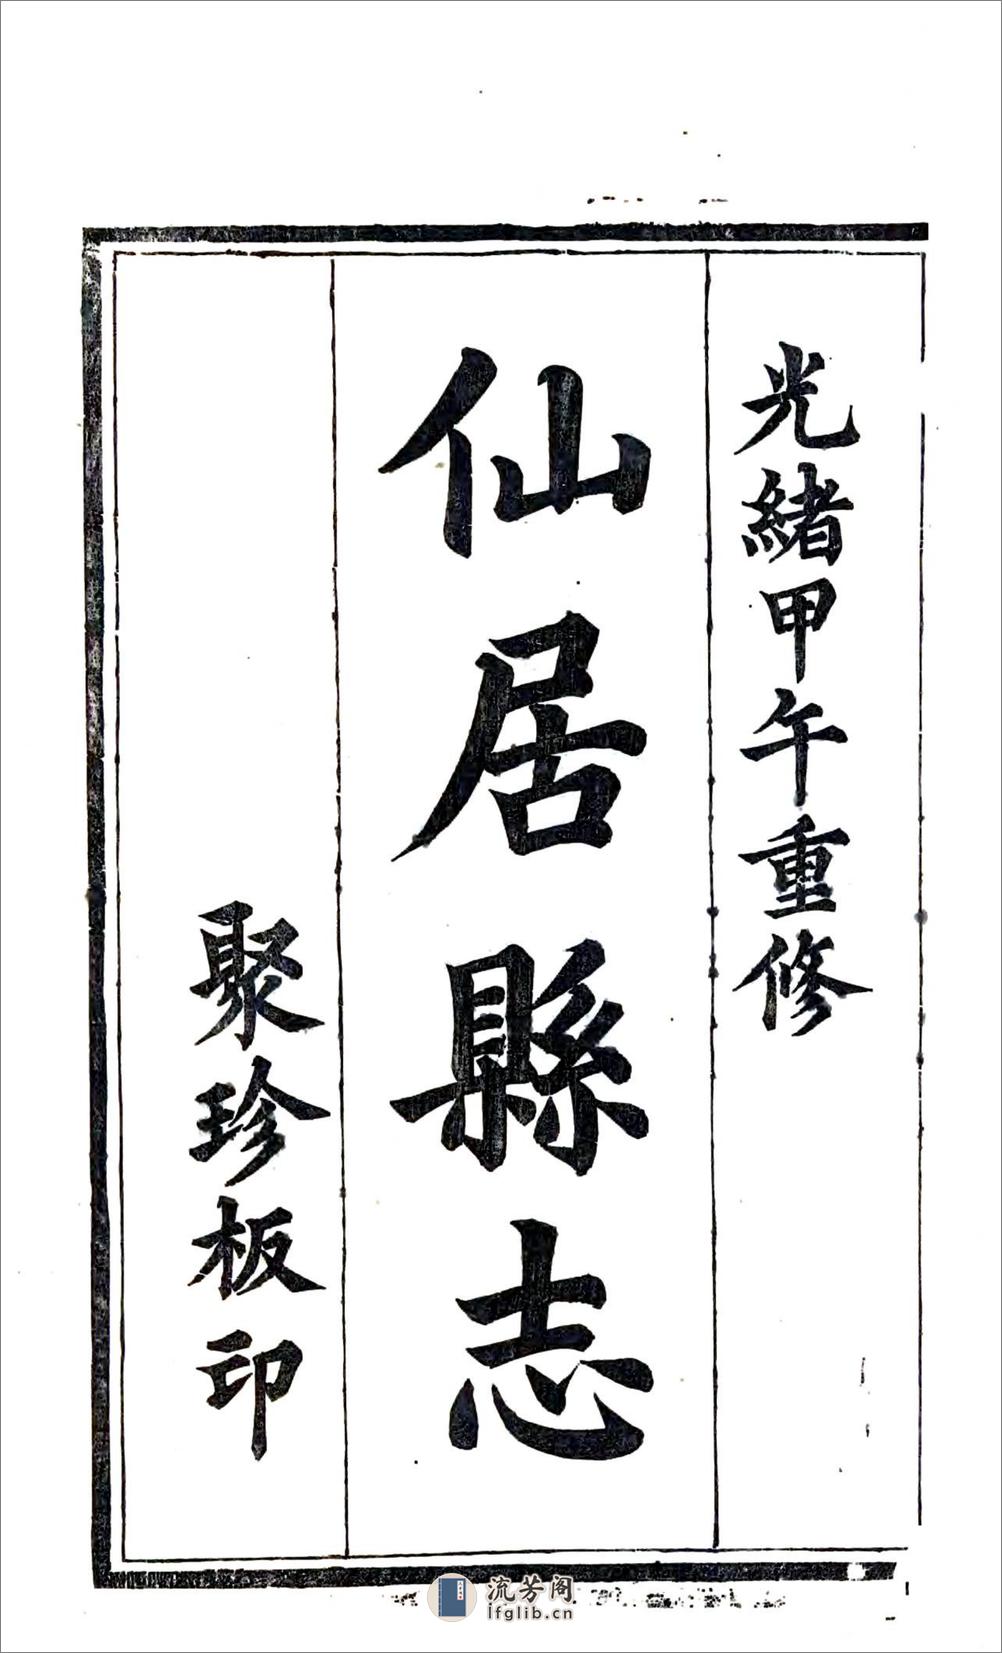 光緒甲午重修
仙居縣志
聚珍板印
流芳阁
lfglib.cn